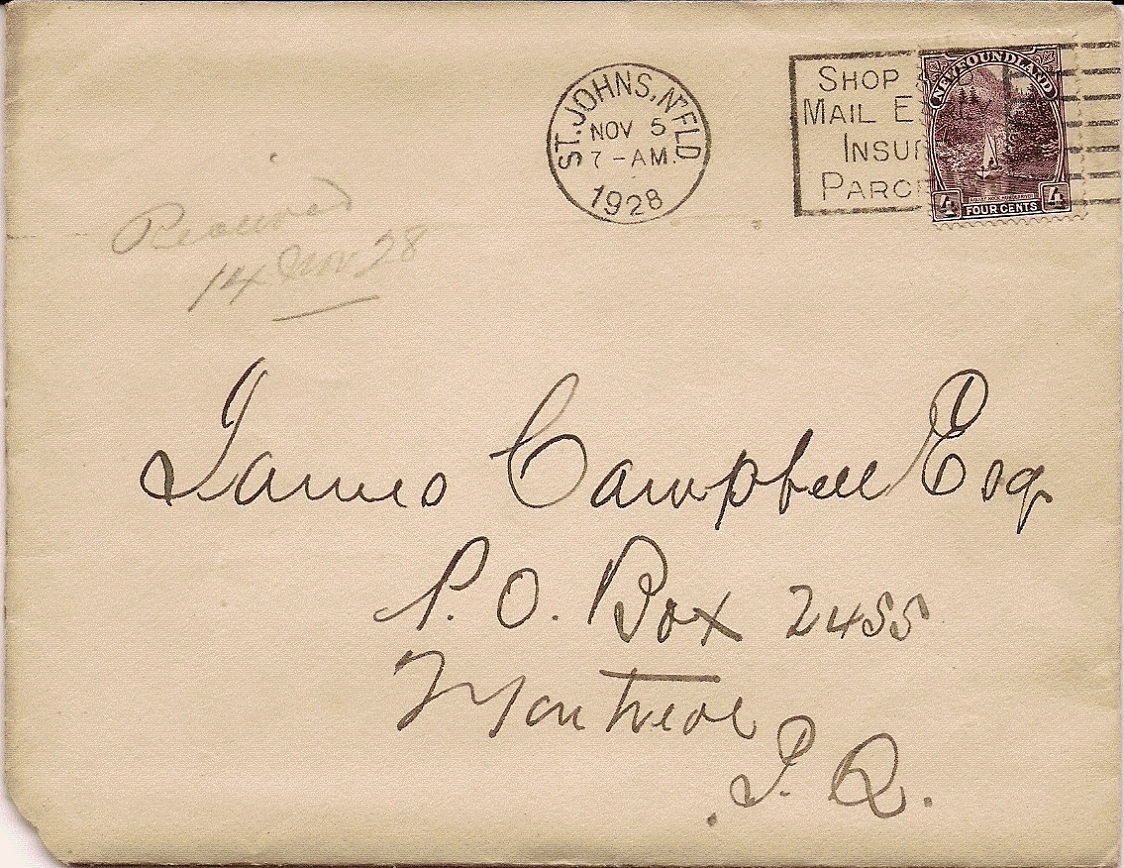 ST. JOHNS, N'FLD
NOV 5
7-AM.
1928
SHOP
MAIL E
INSU
PARC
NEWFOUNDLAND
4 FOUR CENTS 4
Received
14 Nov 28
James Campbell Esq
P.O. Box 2455
Montreal
P.Q.